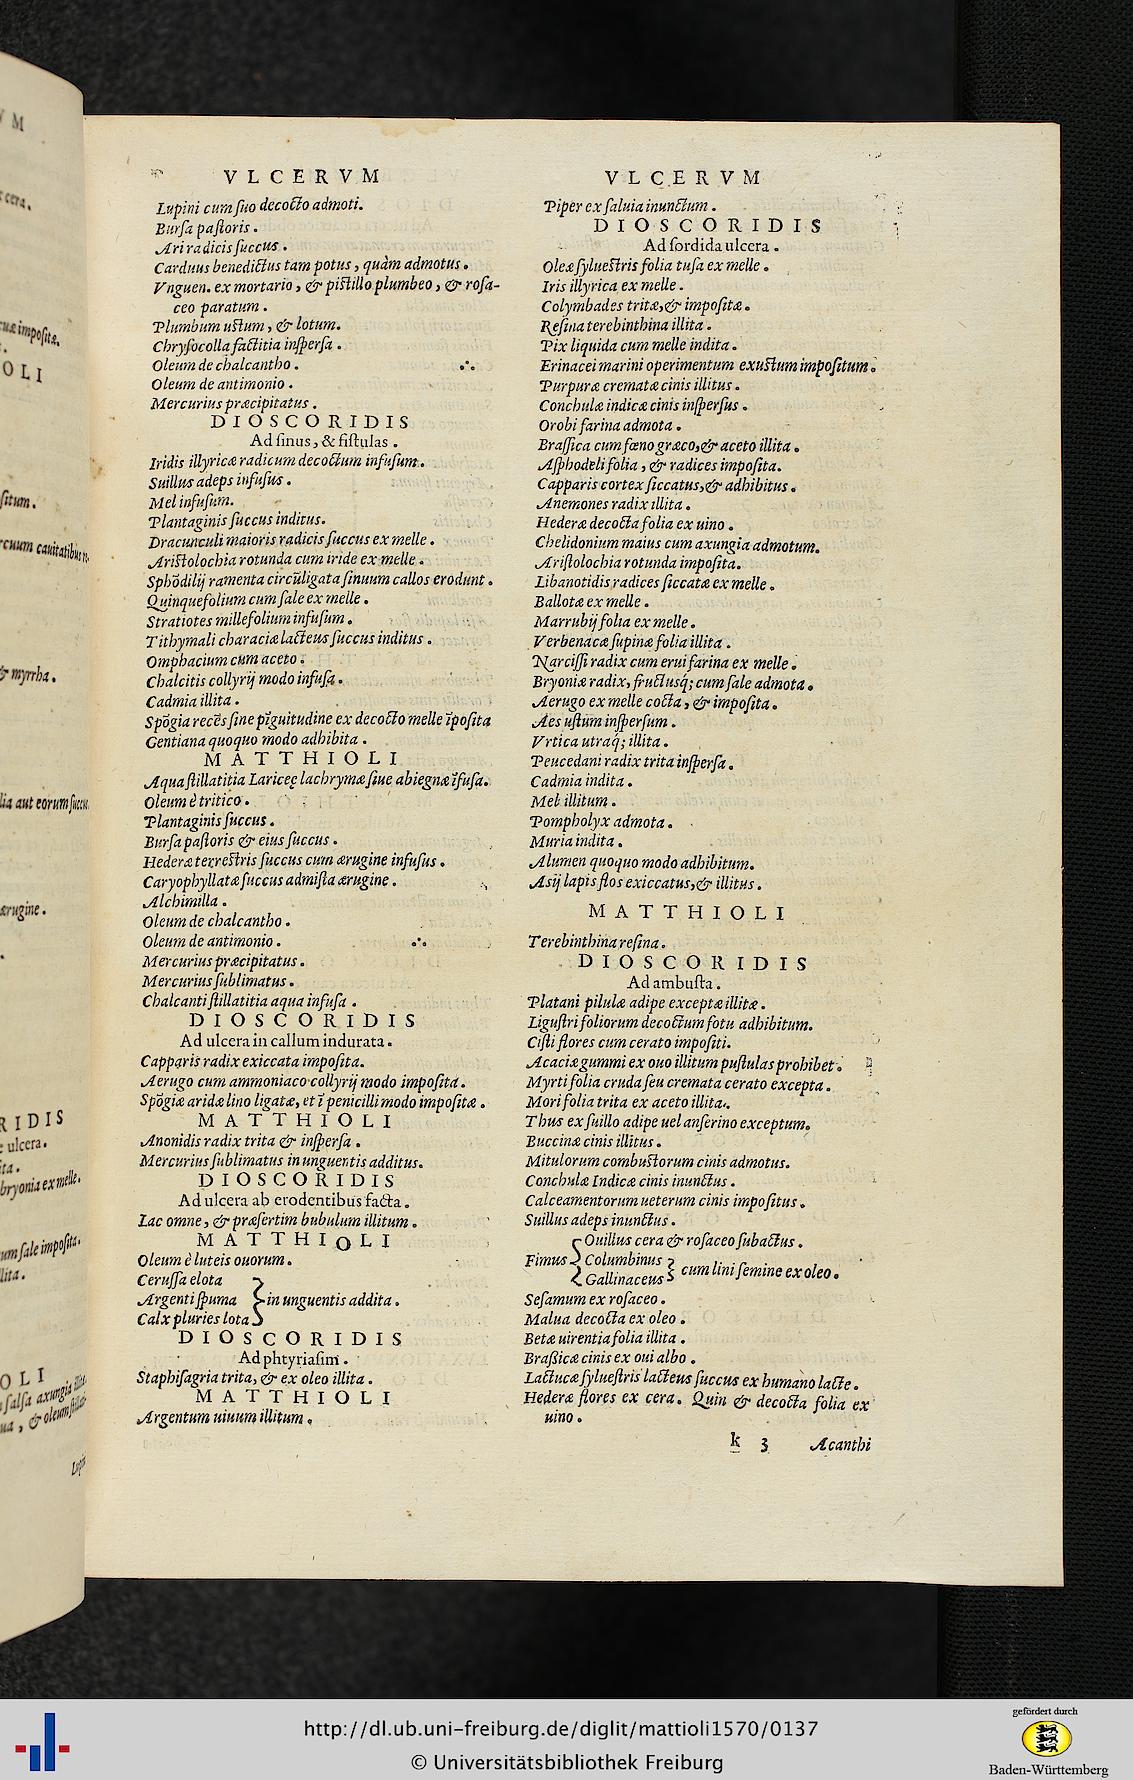 VLCERVM
Lupini cum ſuo decocto admoti.
Burſa paſtoris.
Ari radicis ſuccus.
Carduus benedictus tam potus, quàm admotus.
Vnguen. ex mortario, & piſtillo plumbeo, & roſa-
ceo paratum.
Plumbum uſtum, & lotum.
Chryſocolla factitia inſperſa.
Oleum de chalcantho.
Oleum de antimonio.
Mercurius præcipitatus.
DIOSCORIDIS
Ad ſinus, & fiſtulas.
Iridis illyricæ radicum decoctum infuſum.
Suillus adeps infuſus.
Mel infuſum.
Plantaginis ſuccus inditus.
Dracunculi maioris radicis ſuccus ex melle.
Ariſtolochia rotunda cum iride ex melle.
Sphōdilij ramenta circūligata ſinuum callos erodunt.
Quinquefolium cum ſale ex melle.
Stratiotes millefolium infuſum.
Tithymali characiæ lacteus ſuccus inditus.
Omphacium cum aceto.
Chalcitis collyrij modo infuſa.
Cadmia illita.
Spōgia recēs ſine pīguitudine ex decocto melle īpoſita
Gentiana quoquo modo adhibita.
MATTHIOLI
Aqua ſtillatitia Lariceę lachrymæ ſiue abiegnæ īfuſa.
Oleum è tritico.
Plantaginis ſuccus.
Burſa paſtoris & eius ſuccus.
Hederæ terreſtris ſuccus cum ærugine infuſus.
Caryophyllatæ ſuccus admiſta ærugine.
Alchimilla.
Oleum de chalcantho.
Oleum de antimonio.
Mercurius præcipitatus.
Mercurius ſublimatus.
Chalcanti ſtillatitia aqua infuſa.
DIOSCORIDIS
Ad ulcera in callum indurata.
Capparis radix exiccata impoſita.
Aerugo cum ammoniaco collyrij modo impoſita.
Spōgiæ aridæ lino ligatæ, et ī penicilli modo impoſitæ.
MATTHIOLI
Anonidis radix trita & inſperſa.
Mercurius ſublimatus in unguentis additus.
DIOSCORIDIS
Ad ulcera ab erodentibus facta.
Lac omne, & præſertim bubulum illitum.
MATTHIOLI
Oleum è luteis ouorum.
Ceruſſa elota
Argenti ſpuma } in unguentis addita.
Calx pluries lota
DIOSCORIDIS
Ad phtyriaſim.
Staphiſagria trita, & ex oleo illita.
MATTHIOLI
Argentum uiuum illitum.
VLCERVM
Piper ex ſaluia inunctum.
DIOSCORIDIS
Ad ſordida ulcera.
Oleæ ſylueſtris folia tuſa ex melle.
Iris illyrica ex melle.
Colymbades tritæ, & impoſitæ.
Reſina terebinthina illita.
Pix liquida cum melle indita.
Erinacei marini operimentum exuſtum impoſitum.
Purpuræ crematæ cinis illitus.
Conchulæ indicæ cinis inſperſus.
Orobi farina admota.
Braſſica cum fœno græco, & aceto illita.
Aſphodeli folia, & radices impoſita.
Capparis cortex ſiccatus, & adhibitus.
Anemones radix illita.
Hederæ decocta folia ex uino.
Chelidonium maius cum axungia admotum.
Ariſtolochia rotunda impoſita.
Libanotidis radices ſiccatæ ex melle.
Ballotæ ex melle.
Marrubij folia ex melle.
Verbenacæ ſupinæ folia illita.
Narciſſi radix cum erui farina ex melle.
Bryoniæ radix, fructusq́; cum ſale admota.
Aerugo ex melle cocta, & impoſita.
Aes uſtum inſperſum.
Vrtica utraq́; illita.
Peucedani radix trita inſperſa.
Cadmia indita.
Mel illitum.
Pompholyx admota.
Muria indita.
Alumen quoquo modo adhibitum.
Asij lapis flos exiccatus, & illitus.
MATTHIOLI
Terebinthina reſina.
DIOSCORIDIS
Ad ambuſta.
Platani pilulæ adipe exceptæ illitæ.
Liguſtri foliorum decoctum fotu adhibitum.
Ciſti flores cum cerato impoſiti.
Acaciæ gummi ex ouo illitum puſtulas prohibet.
Myrti folia cruda ſeu cremata cerato excepta.
Mori folia trita ex aceto illita.
Thus ex ſuillo adipe uel anſerino exceptum.
Buccinæ cinis illitus.
Mitulorum combuſtorum cinis admotus.
Conchulæ Indicæ cinis inunctus.
Calceamentorum ueterum cinis impoſitus.
Suillus adeps inunctus.
Ouillus cera & roſaceo ſubactus.
Fimus { Columbinus } cum lini ſemine ex oleo.
Gallinaceus
Seſamum ex roſaceo.
Malua decocta ex oleo.
Betæ uirentia folia illita.
Braßicæ cinis ex oui albo.
Lactucæ ſylueſtris lacteus ſuccus ex humano lacte.
Hederæ flores ex cera. Quin & decocta folia ex
uino.
k 3 Acanthi
http://dl.ub.uni-freiburg.de/diglit/mattioli1570/0137
© Universitätsbibliothek Freiburg
gefördert durch
Baden-Württemberg